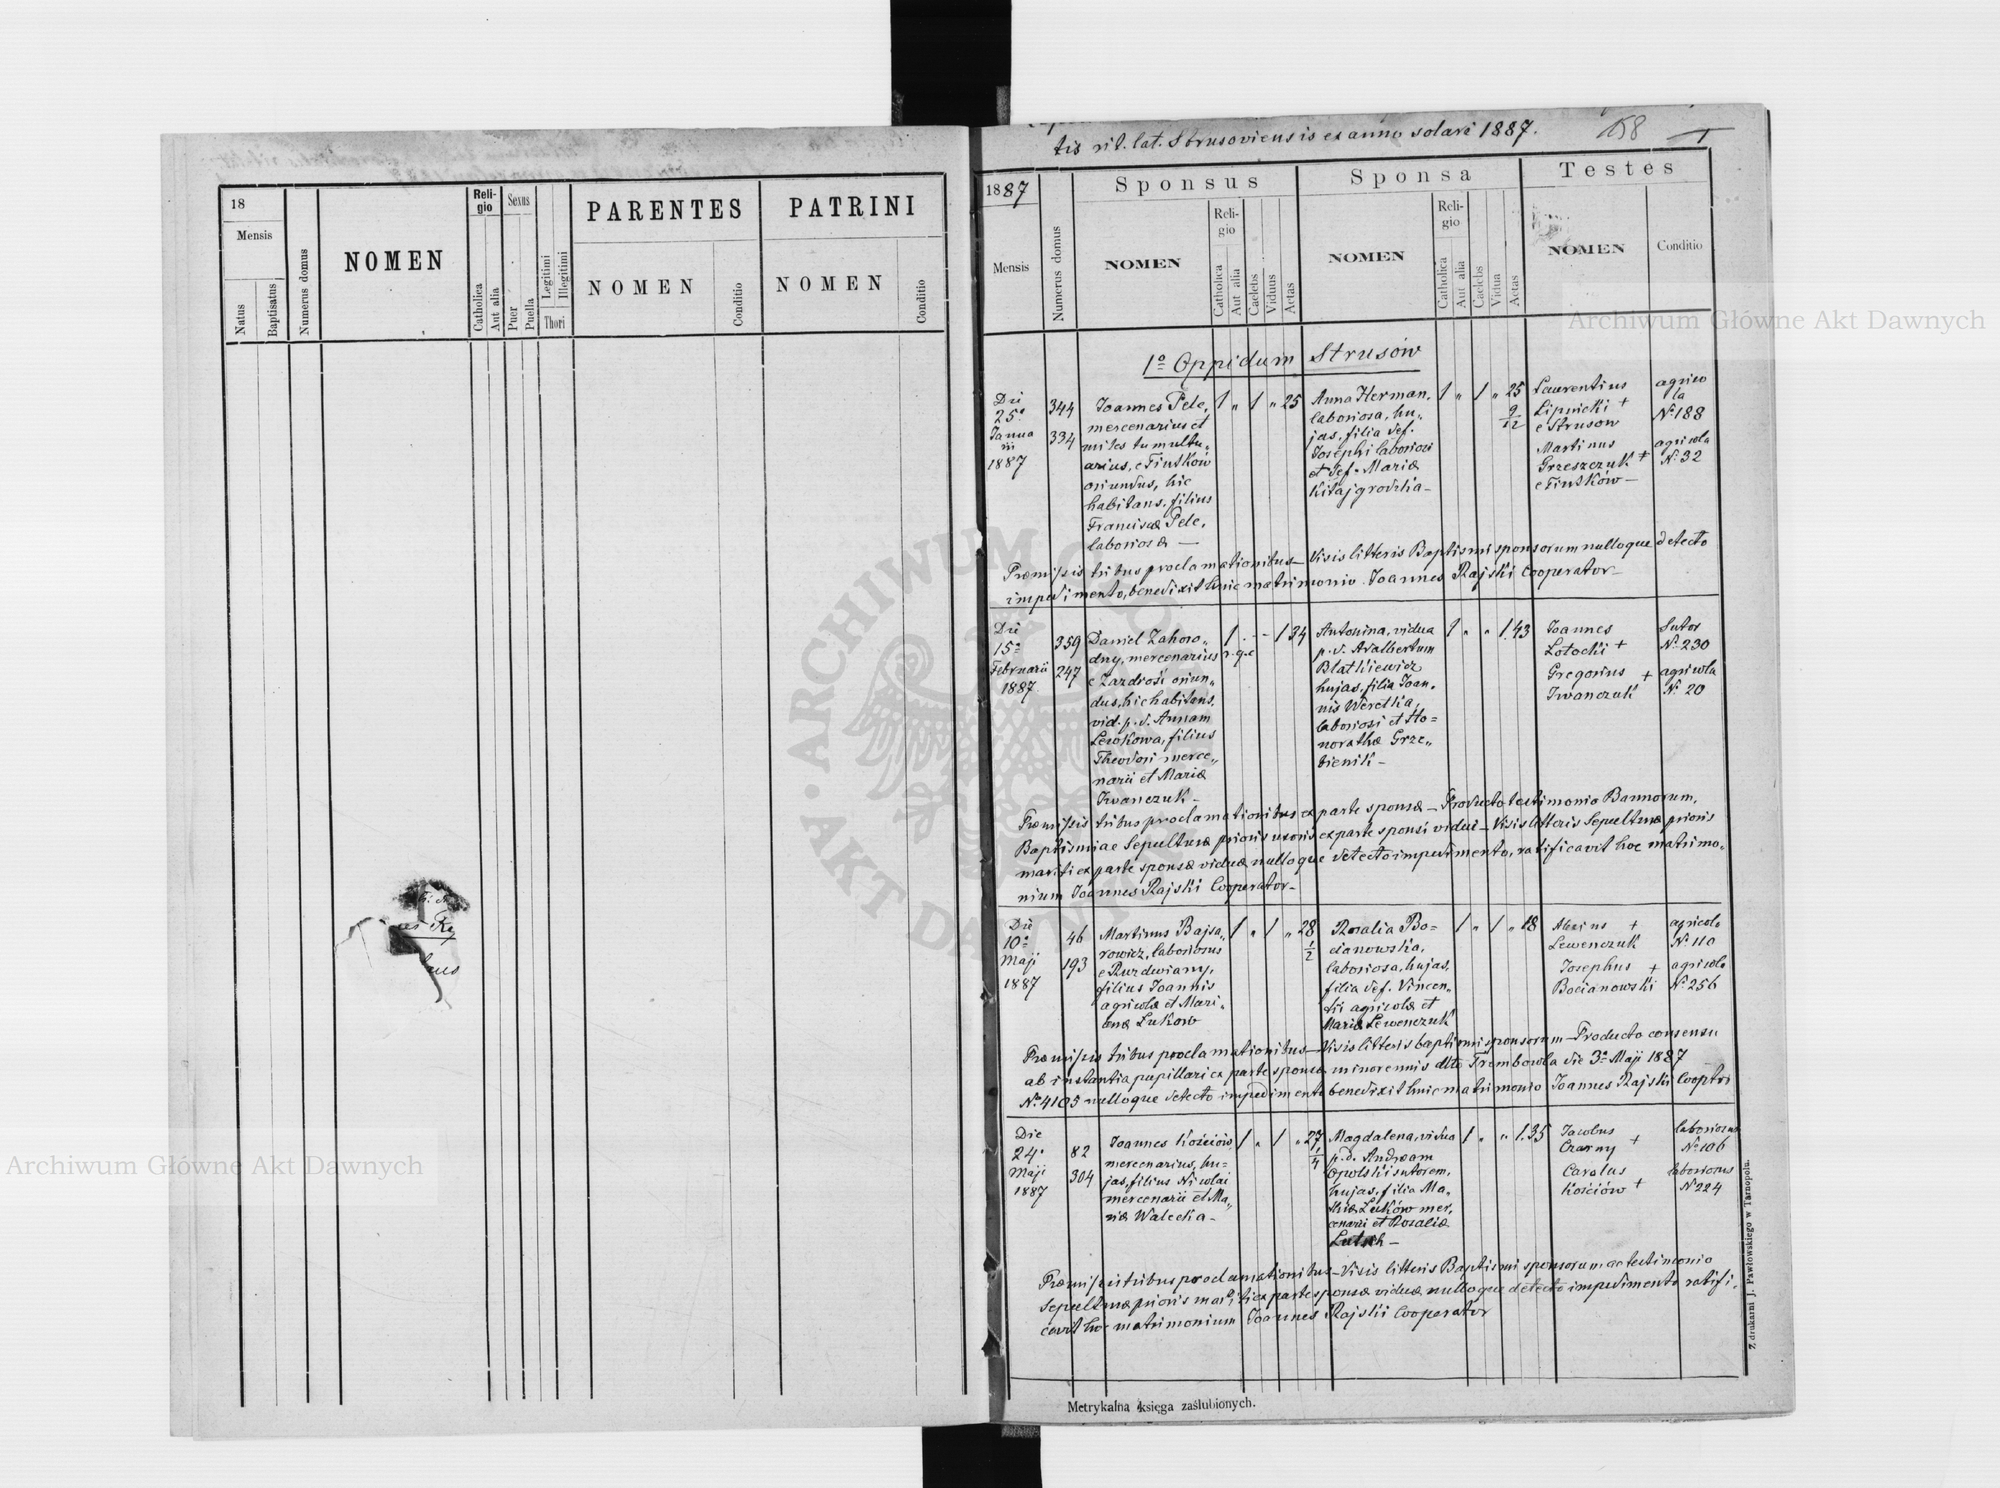 18
Mensis
Natus
Baptisatus
Numerus domus
NOMEN
Reli-
gio
Catholica
Aut alia
Sexus
Puer
Puella
Legitimi
Illegitimi
Thori
PARENTES
NOMEN
Conditio
PATRINI
NOMEN
Conditio
tis rit. lat. Strusoviensis ex anno solari 1887.
158
1
1887
Mensis
Numerus domus
Sponsus
NOMEN
Reli-
gio
Catholica
Aut alia
Caelebs
Viduus
Aetas
Sponsa
NOMEN
Reli-
gio
Catholica
Aut alia
Caelebs
Vidua
Aetas
Testes
NOMEN
Conditio
1º Oppidum Strusów
Die
25ª
Janua
rii
1887
344
334
Joannes Pele,
mercenarius et
miles tumultu„
arius, e Tiutków
oriundus, hic
habitans, filius
Franciscæ Pele,
laboriosæ —
1 „ 1 „ 25
Anna Herman,
laboriosa, hu„
jas, filia def.
Josephi laboriosi
et def. Mariæ
Kitajgrodzka —
1 „ 1 „ 25
9/12
Laurentius
Lipnicki +
e Strusow
Martinus
Grzeszczuk +
e Tiutków —
agrico
la
Nº 188
agricola
Nº 32
Præmissis tribus proclamationibus — Visis litteris Baptismi sponsorum nulloque detecto
impedimento, benedixit huic matrimonio Joannes Rajski Cooperator —
Die
15ª
Februarii
1887
359
247
Daniel Zahoro„
dny, mercenarius
e Zazdrość oriun„
dus, hic habitans,
vid. p. d. Annam
Lewkowa, filius
Theodori merce„
narii et Mariæ
Iwanczuk —
1 . - 1 34
r. g. c
Antonina, vidua
p. d. Adalbertum
Blatkiewicz
hujas, filia Joan„
nis Weretka,
laboriosi et Ho=
norathæ Grze„
bienik —
1 „ „ 1 43
Joannes
Łotocki +
Gregorius +
Iwanczuk
Sutor
Nº 230
agricola
Nº 20
Præmissis tribus proclamationibus ex parte sponsæ — Producto testimonio Bannorum,
Baptismi ac Sepulturæ prioris uxoris ex parte sponsi vidui — Visis litteris Sepulturæ prioris
mariti ex parte sponsæ viduæ nulloque detecto impedimento, ratificavit hoc matrimo„
nium Joannes Rajski Cooperator —
Die
10ª
Maji
1887
46
193
Martinus Bajsa„
rowicz, laboriosus
e Ruzdwiany,
filius Joannis
agricolæ et Mari„
anæ Lukow
1 „ 1 „ 28
1/2
Rosalia Bo=
cianowska,
laboriosa, hujas,
filia def. Vincen„
tii agricolæ et
Mariæ Lewenczuk
1 „ 1 „ 18
+
Lewenczuk
Josephus +
Bocianowski
agricola
Nº 110
agricola
Nº 256
Præmissis tribus proclamationibus — Visis litteris baptismi sponsorum — Producto consensu
ab instantia pupillari ex parte sponsæ minorennis dtto Trembowla die 3ª Maji 1887
Nº 4105 nulloque detecto impedimento benedixit huic matrimonio Joannes Rajski Cooptor
Die
24ª
Maji
1887
82
304
Joannes Kościów
mercenarius, hu=
jas, filius Nicolai
mercenarii et Ma„
riæ Walecka —
1 „ 1 „ 27
1/4
Magdalena, vidua
p. d. Andream
Opolski sutorem,
hujas, filia Ma„
thiæ Luków mer„
cenarii et Rosaliæ
1 „ „ 1 35
Jacobus
Czarny +
Carolus
Kościów +
laboriosus
Nº 106
laboriosus
Nº 224
Præmissis tribus proclamationibus — Visis litteris Baptismi sponsorum ac testimonio
Sepulturæ prioris mariti ex parte sponsæ viduæ nulloque detecto impedimento ratifi„
cavit hoc matrimonium Joannes Rajski Cooperator
Metrykalna księga zaślubionych.
Z drukarni J. Pawłowskiego w Tarnopolu.
Archiwum Główne Akt Dawnych
Archiwum Główne Akt Dawnych